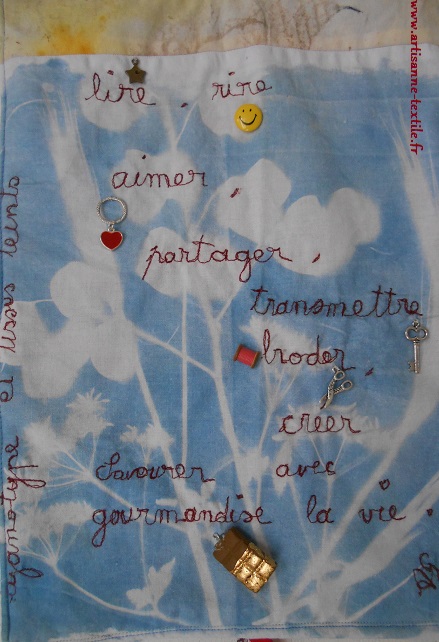 www.artisanne-textile.fr
lire, rire
aimer,
partager,
transmettre
broder,
créer
Savourer avec
gourmandise la vie.